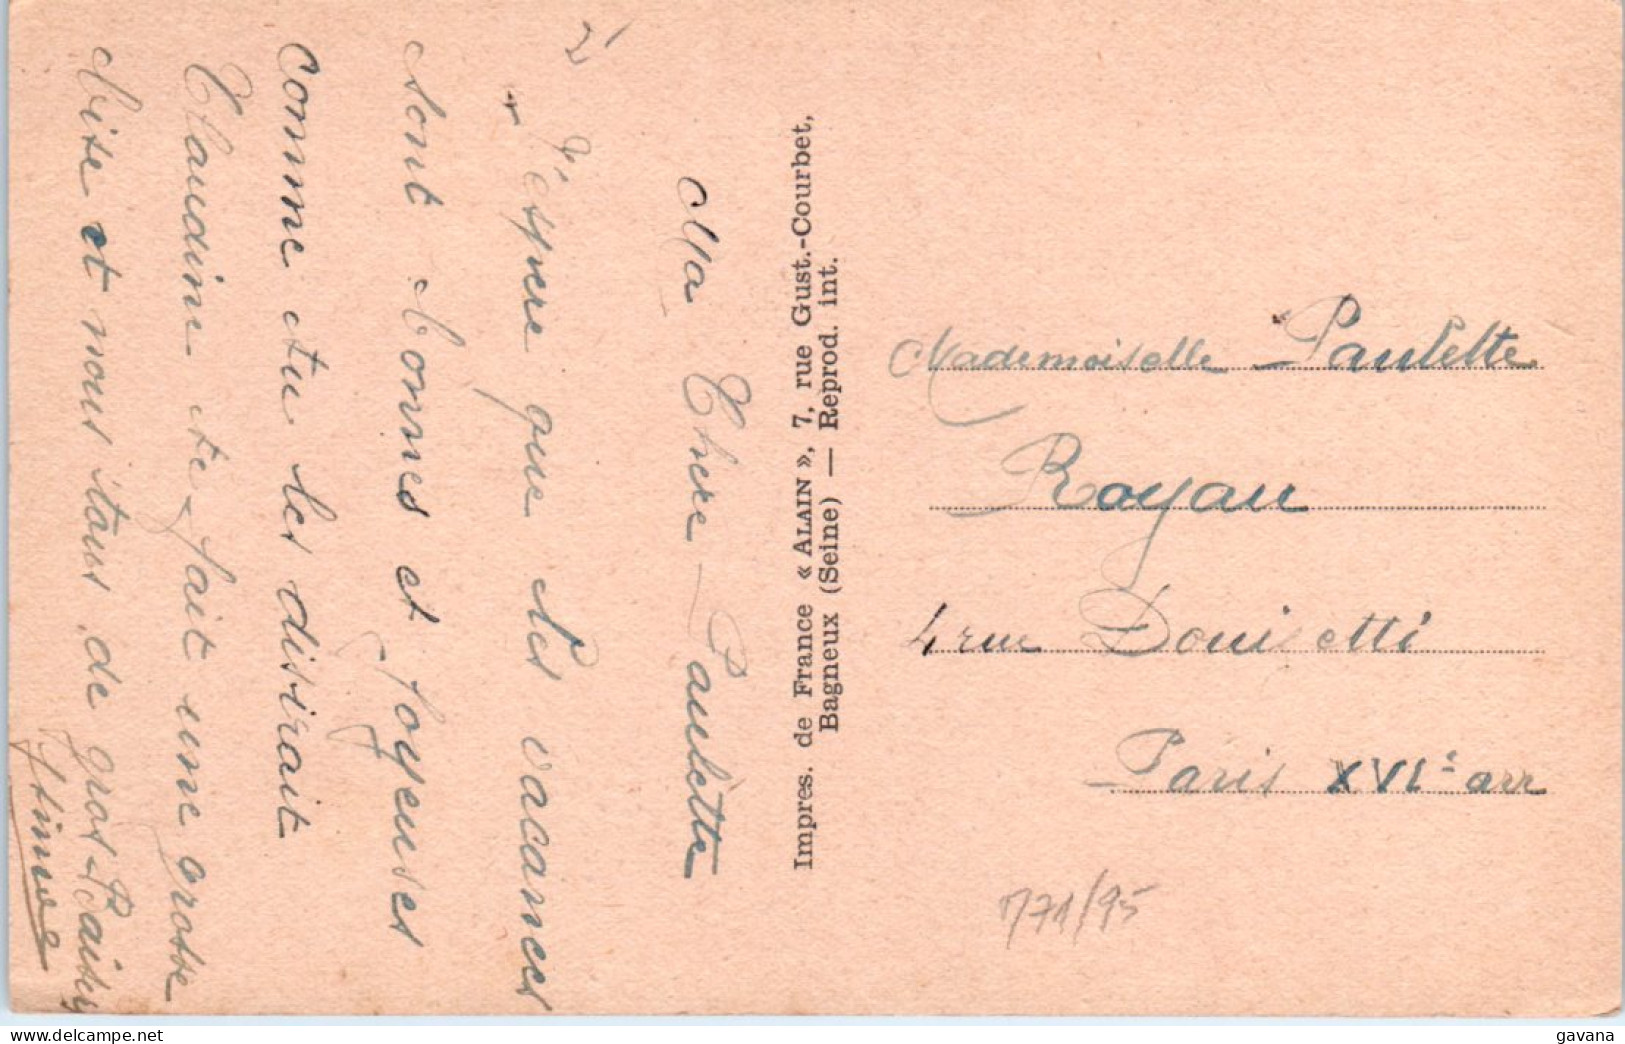 Ma Chere Paulette
J'espere que les vacances
sont bonnes et joyeuses
comme tu les disirait
Claudine te fait une grosse
bise et nous tous de gros Baisers
Impres. de France « ALAIN », 7, rue Gust.-Courbet,
Bagneux (Seine) — Reprod. int.
Mademoiselle Paulette
Royau
4 rue Donisetti
Paris XVIe arr
771/95
gavana